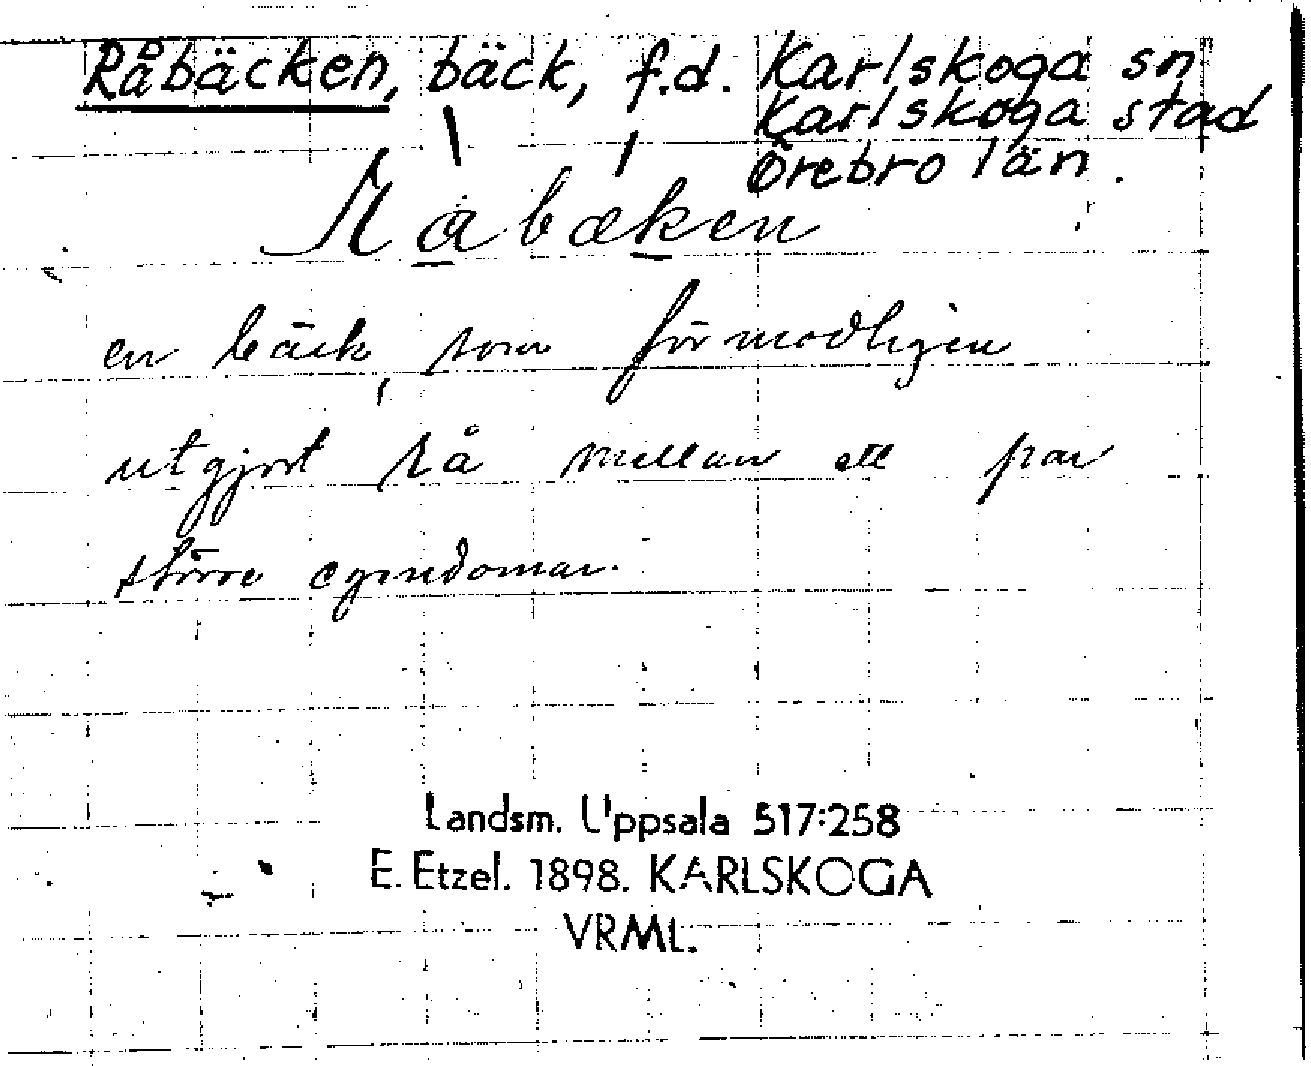 Råbäcken, bäck, f.d. Karlskoga sn
Karlskoga stad
Örebro län.
Råbæken
en bäck, som förmodligen
utgjort rå mellan ett par
större egendomar.
Landsm. Uppsala 517:258
E. Etzel. 1898. KARLSKOGA
VRML.